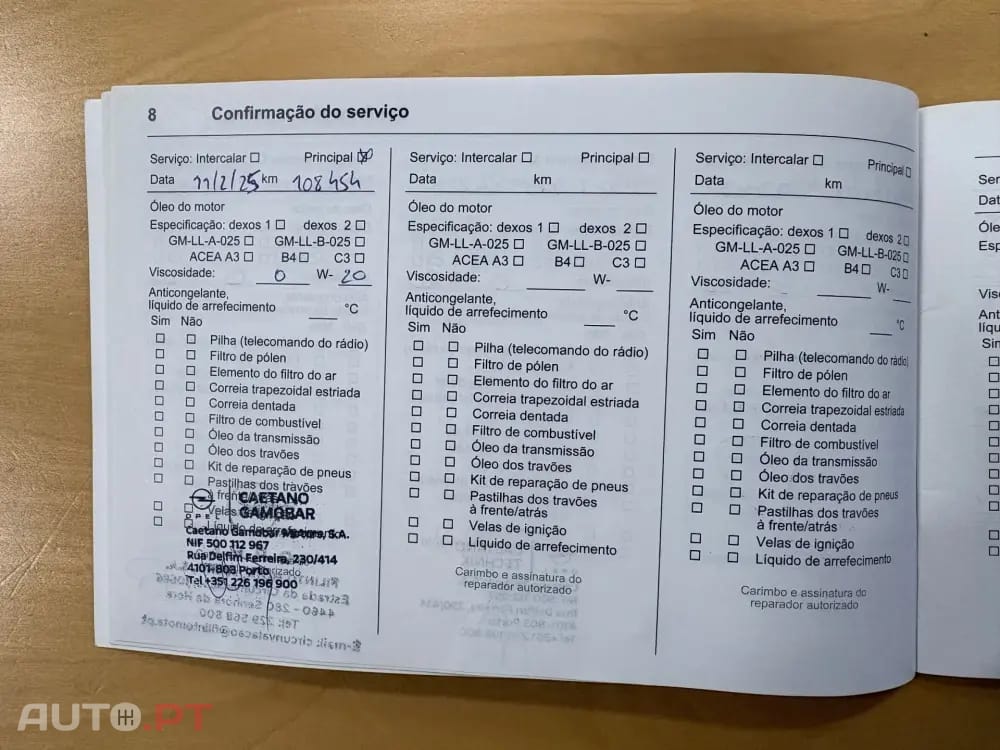 8 Confirmação do serviço
Serviço: Intercalar ☐ Principal ☒
Data 11/2/25 km 108 454
Óleo do motor
Especificação: dexos 1 ☐ dexos 2 ☐
GM-LL-A-025 ☐ GM-LL-B-025 ☐
ACEA A3 ☐ B4 ☐ C3 ☐
Viscosidade: 0 W- 20
Anticongelante,
líquido de arrefecimento ____ °C
Sim Não
☐ ☐ Pilha (telecomando do rádio)
☐ ☐ Filtro de pólen
☐ ☐ Elemento do filtro do ar
☐ ☐ Correia trapezoidal estriada
☐ ☐ Correia dentada
☐ ☐ Filtro de combustível
☐ ☐ Óleo da transmissão
☐ ☐ Óleo dos travões
☐ ☐ Kit de reparação de pneus
☐ ☐ Pastilhas dos travões
à frente
☐ ☐ Velas
☐ ☐ Líquido de arrefecimento
OPEL
CAETANO
GAMOBAR
Caetano Gamobar Motors, S.A.
NIF 500 112 967
Rua Delfim Ferreira, 230/414
4101-803 Porto
Tel +351 226 196 900
Serviço: Intercalar ☐ Principal ☐
Data km
Óleo do motor
Especificação: dexos 1 ☐ dexos 2 ☐
GM-LL-A-025 ☐ GM-LL-B-025 ☐
ACEA A3 ☐ B4 ☐ C3 ☐
Viscosidade: ____ W- ____
Anticongelante,
líquido de arrefecimento ____ °C
Sim Não
☐ ☐ Pilha (telecomando do rádio)
☐ ☐ Filtro de pólen
☐ ☐ Elemento do filtro do ar
☐ ☐ Correia trapezoidal estriada
☐ ☐ Correia dentada
☐ ☐ Filtro de combustível
☐ ☐ Óleo da transmissão
☐ ☐ Óleo dos travões
☐ ☐ Kit de reparação de pneus
☐ ☐ Pastilhas dos travões
à frente/atrás
☐ ☐ Velas de ignição
☐ ☐ Líquido de arrefecimento
Carimbo e assinatura do
reparador autorizado
Serviço: Intercalar ☐ Principal ☐
Data km
Óleo do motor
Especificação: dexos 1 ☐ dexos 2 ☐
GM-LL-A-025 ☐ GM-LL-B-025 ☐
ACEA A3 ☐ B4 ☐ C3 ☐
Viscosidade: ____ W- ____
Anticongelante,
líquido de arrefecimento ____ °C
Sim Não
☐ ☐ Pilha (telecomando do rádio)
☐ ☐ Filtro de pólen
☐ ☐ Elemento do filtro do ar
☐ ☐ Correia trapezoidal estriada
☐ ☐ Correia dentada
☐ ☐ Filtro de combustível
☐ ☐ Óleo da transmissão
☐ ☐ Óleo dos travões
☐ ☐ Kit de reparação de pneus
☐ ☐ Pastilhas dos travões
à frente/atrás
☐ ☐ Velas de ignição
☐ ☐ Líquido de arrefecimento
Carimbo e assinatura do
reparador autorizado
AUTO.PT